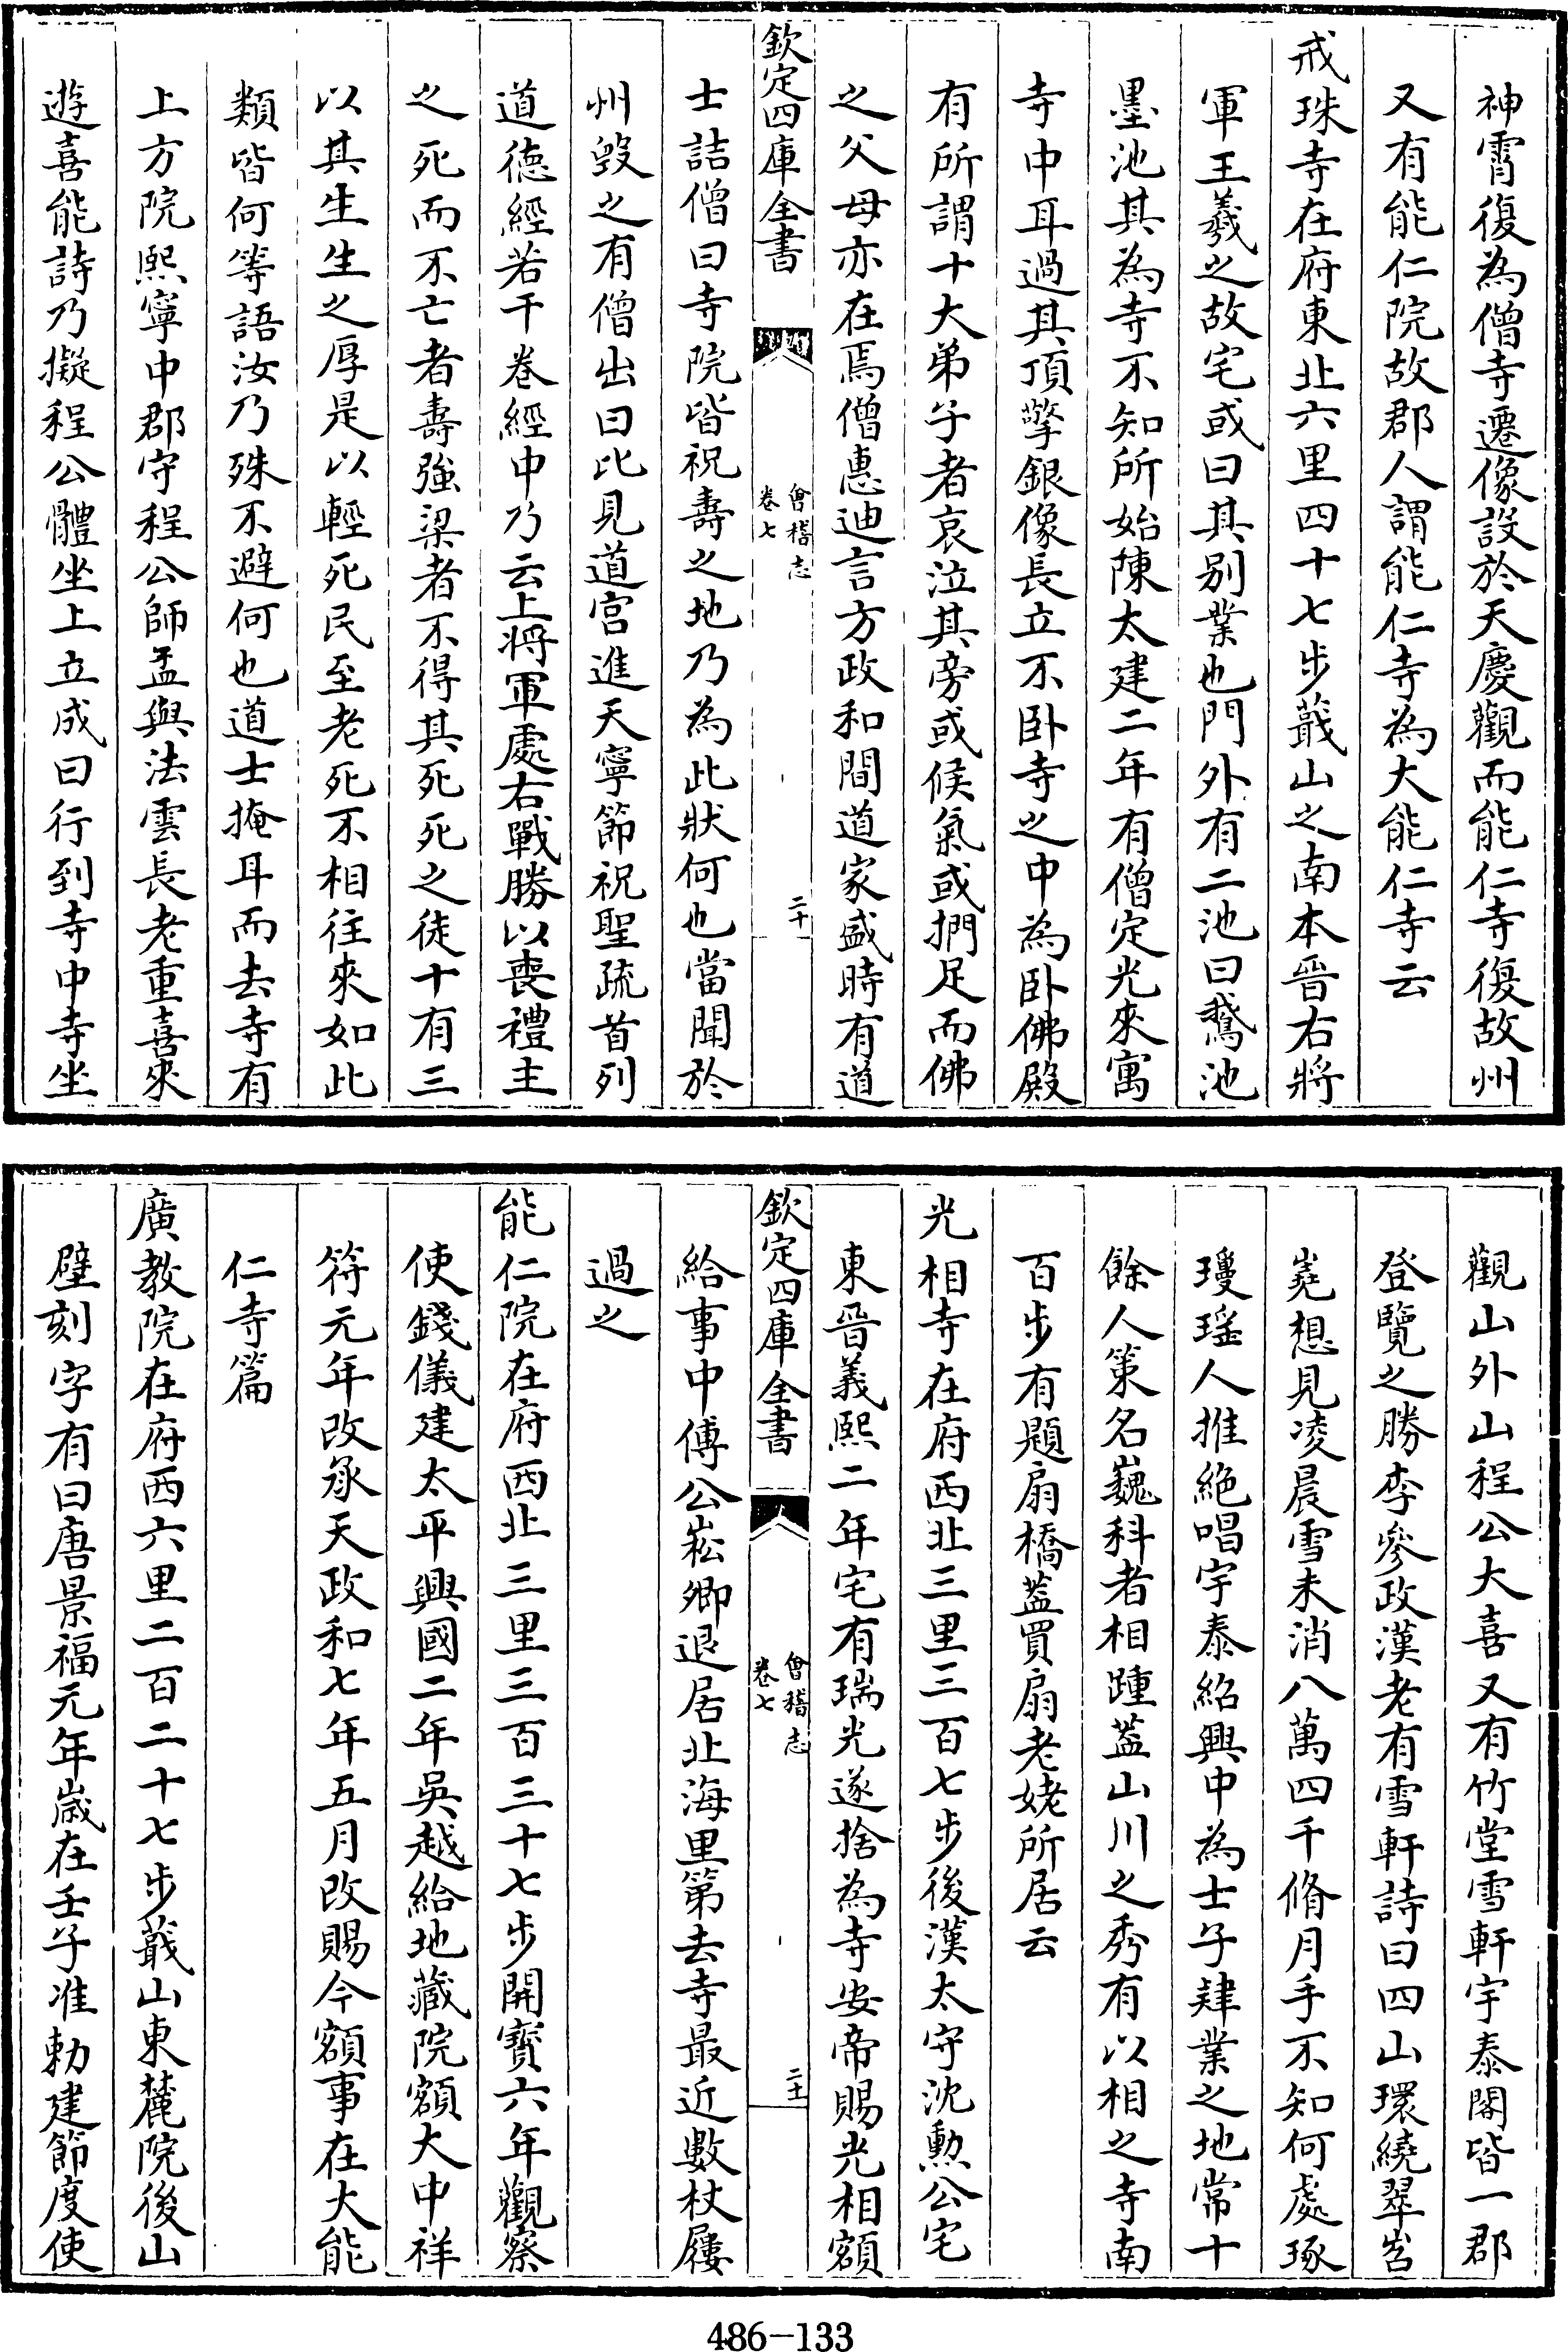 神霄復為僧寺遷像設於天慶觀而能仁寺復故州
又有能仁院故郡人謂能仁寺為大能仁寺云
戒珠寺在府東北六里四十七步蕺山之南本晉右將
軍王羲之故宅或曰其别業也門外有二池曰鵞池
墨池其為寺不知所始陳太建二年有僧定光來寓
寺中耳過其頂擎銀像長立不卧寺之中為卧佛殿
有所謂十大弟子者哀泣其旁或候氣或捫足而佛
之父母亦在焉僧惠迪言方政和間道家盛時有道
欽定四庫全書
會稽志
卷七
二十
士詰僧曰寺院皆祝壽之地乃為此狀何也當聞於
州毀之有僧出曰比見道宫進天寧節祝聖疏首列
道德經若干卷經中乃云上將軍處右戰勝以喪禮主
之死而不亡者壽強梁者不得其死死之徒十有三
以其生生之厚是以輕死民至老死不相往來如此
類皆何等語汝乃殊不避何也道士掩耳而去寺有
上方院熙寧中郡守程公師孟與法雲長老重喜來
遊喜能詩乃擬程公體坐上立成曰行到寺中寺坐
觀山外山程公大喜又有竹堂雪軒宇泰閣皆一郡
登覽之勝李參政漢老有雪軒詩曰四山環繞翠岧
嶤想見凌晨雪未消八萬四千脩月手不知何處琢
瓊瑶人推絶唱宇泰紹興中為士子肄業之地常十
餘人策名巍科者相踵葢山川之秀有以相之寺南
百步有題扇橋葢買扇老姥所居云
光相寺在府西北三里三百七步後漢太守沈勲公宅
東晉義熙二年宅有瑞光遂捨為寺安帝賜光相額
欽定四庫全書
會稽志
卷七
二十一
給事中傅公崧卿退居北海里第去寺最近數杖屨
過之
能仁院在府西北三里三百三十七步開寳六年觀察
使錢儀建太平興國二年吳越給地藏院額大中祥
符元年改承天政和七年五月改賜今額事在大能
仁寺篇
廣教院在府西六里二百二十七步蕺山東麓院後山
壁刻字有曰唐景福元年歲在壬子准勅建節度使
486-133